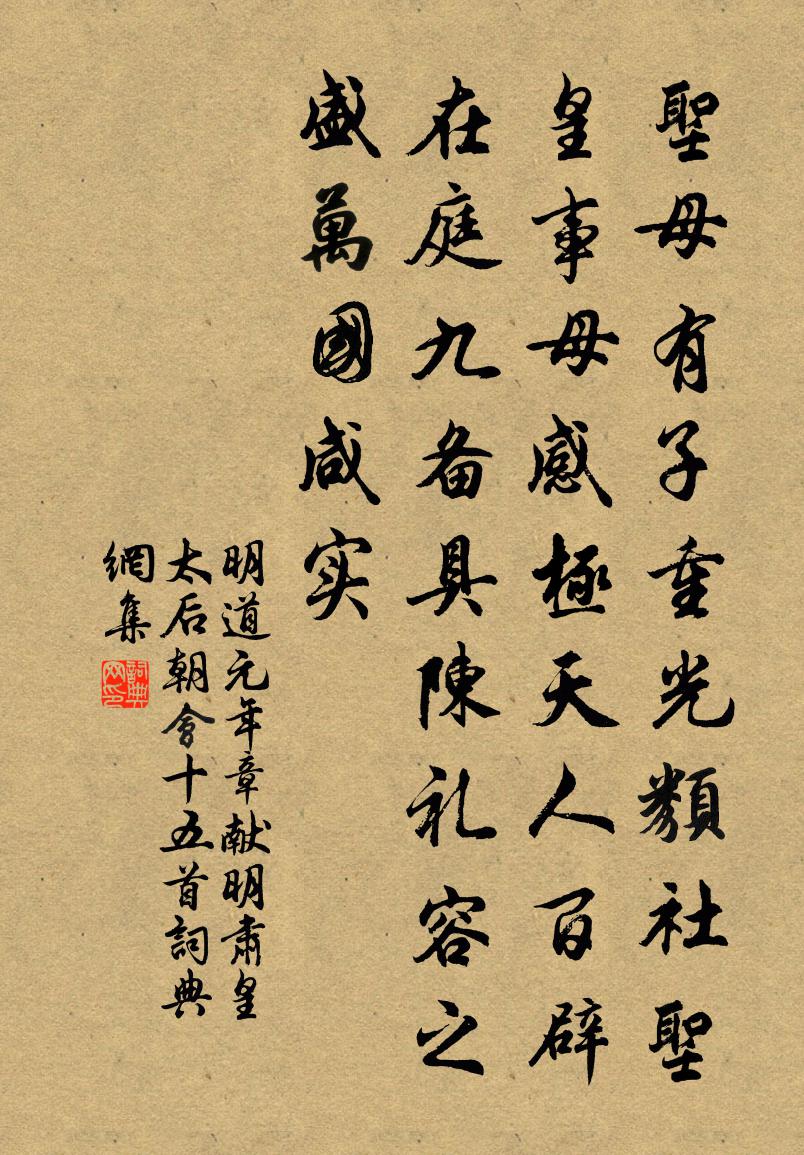 聖母有子重光類社聖
皇事母感極天人百辟
在庭九备具陳礼容之
盛萬國咸实
明道元年章献明肅皇
太后朝會十五首詞典
網集
詞典
网印